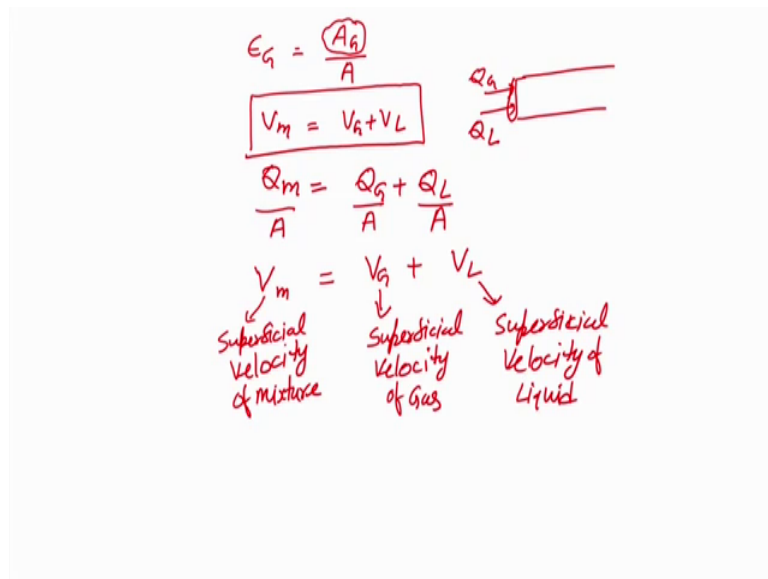 ϵG = AG / A
Vm = VG + VL
QG
QL
Qm / A = QG / A + QL / A
Vm = VG + VL
Superficial velocity of mixture
Superficial velocity of Gas
Superficial velocity of Liquid